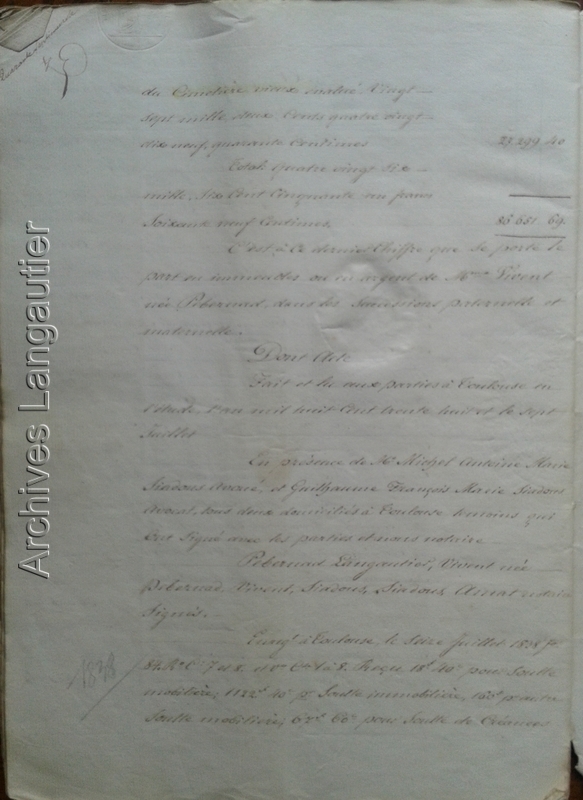 du Cimetière vieux
sept mille deux Cents quatre vingt
dix neuf, quarante Centimes 27.299. 40
Total quatre vingt Six
mille, Six Cent Cinquante un francs
Soixante neuf Centimes, 86.651. 69.
C'est à Ce dernier Chiffre que Se porte le
part en immeubles ou en argent de Mme Vivent
née Pebernad, dans les Successions paternelle et
maternelle.
Dont Acte
Fait et lu aux parties à Toulouse en
l'étude, l'an mil huit Cent trente huit et le Sept
Juillet
En présence de Mr Michel Antoine Marie
Siadous Avoué, et Guilhaume François Marie Siadous
Avocat, tous deux domiciliés à Toulouse temoins qui
ont Signé avec les parties et nous notaire
Pebernad Langautier, Vivent née
Pebernad, Vivent, Siadous, Siadous, Amat notaire
Signés.
à Toulouse, le Seize Juillet 1838
7 et 8. Reçu 18f 40c pour Soulte
mobilière; Soulte immobilière,
Soulte mobilière; pour Soulte de Créances
1838
Archives Langautier